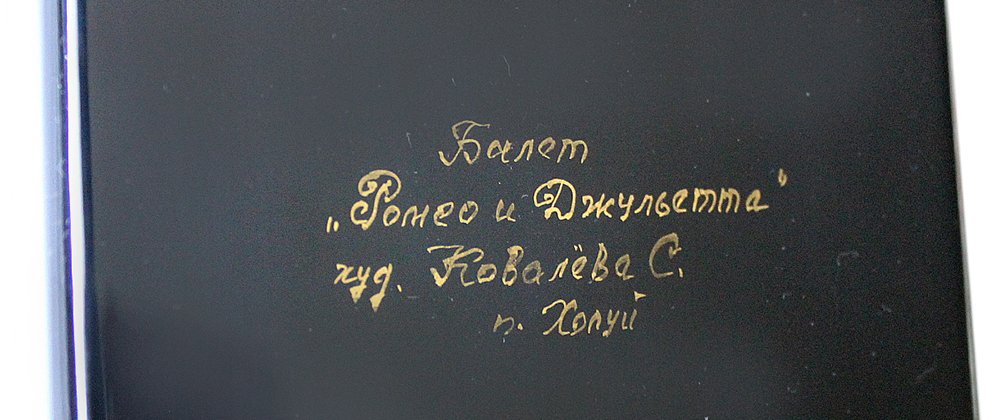 Балет
„Ромео и Джульетта"
худ. Ковалёва С.
п. Холуй